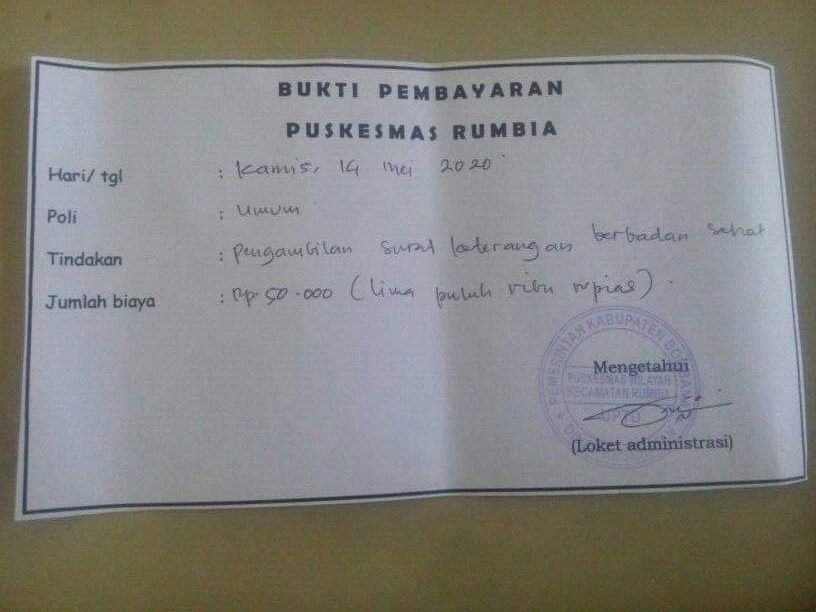 BUKTI PEMBAYARAN
PUSKESMAS RUMBIA
Hari/ tgl : Kamis, 14 mei 2020
Poli : Umum
Tindakan : pengambilan surat keterangan berbadan sehat
Jumlah biaya : Rp. 50.000 (lima puluh ribu rupiah).
PEMERINTAH KABUPATEN BOMBANA
Mengetahui
PUSKESMAS WILAYAH
KECAMATAN RUMBIA
(Loket administrasi)